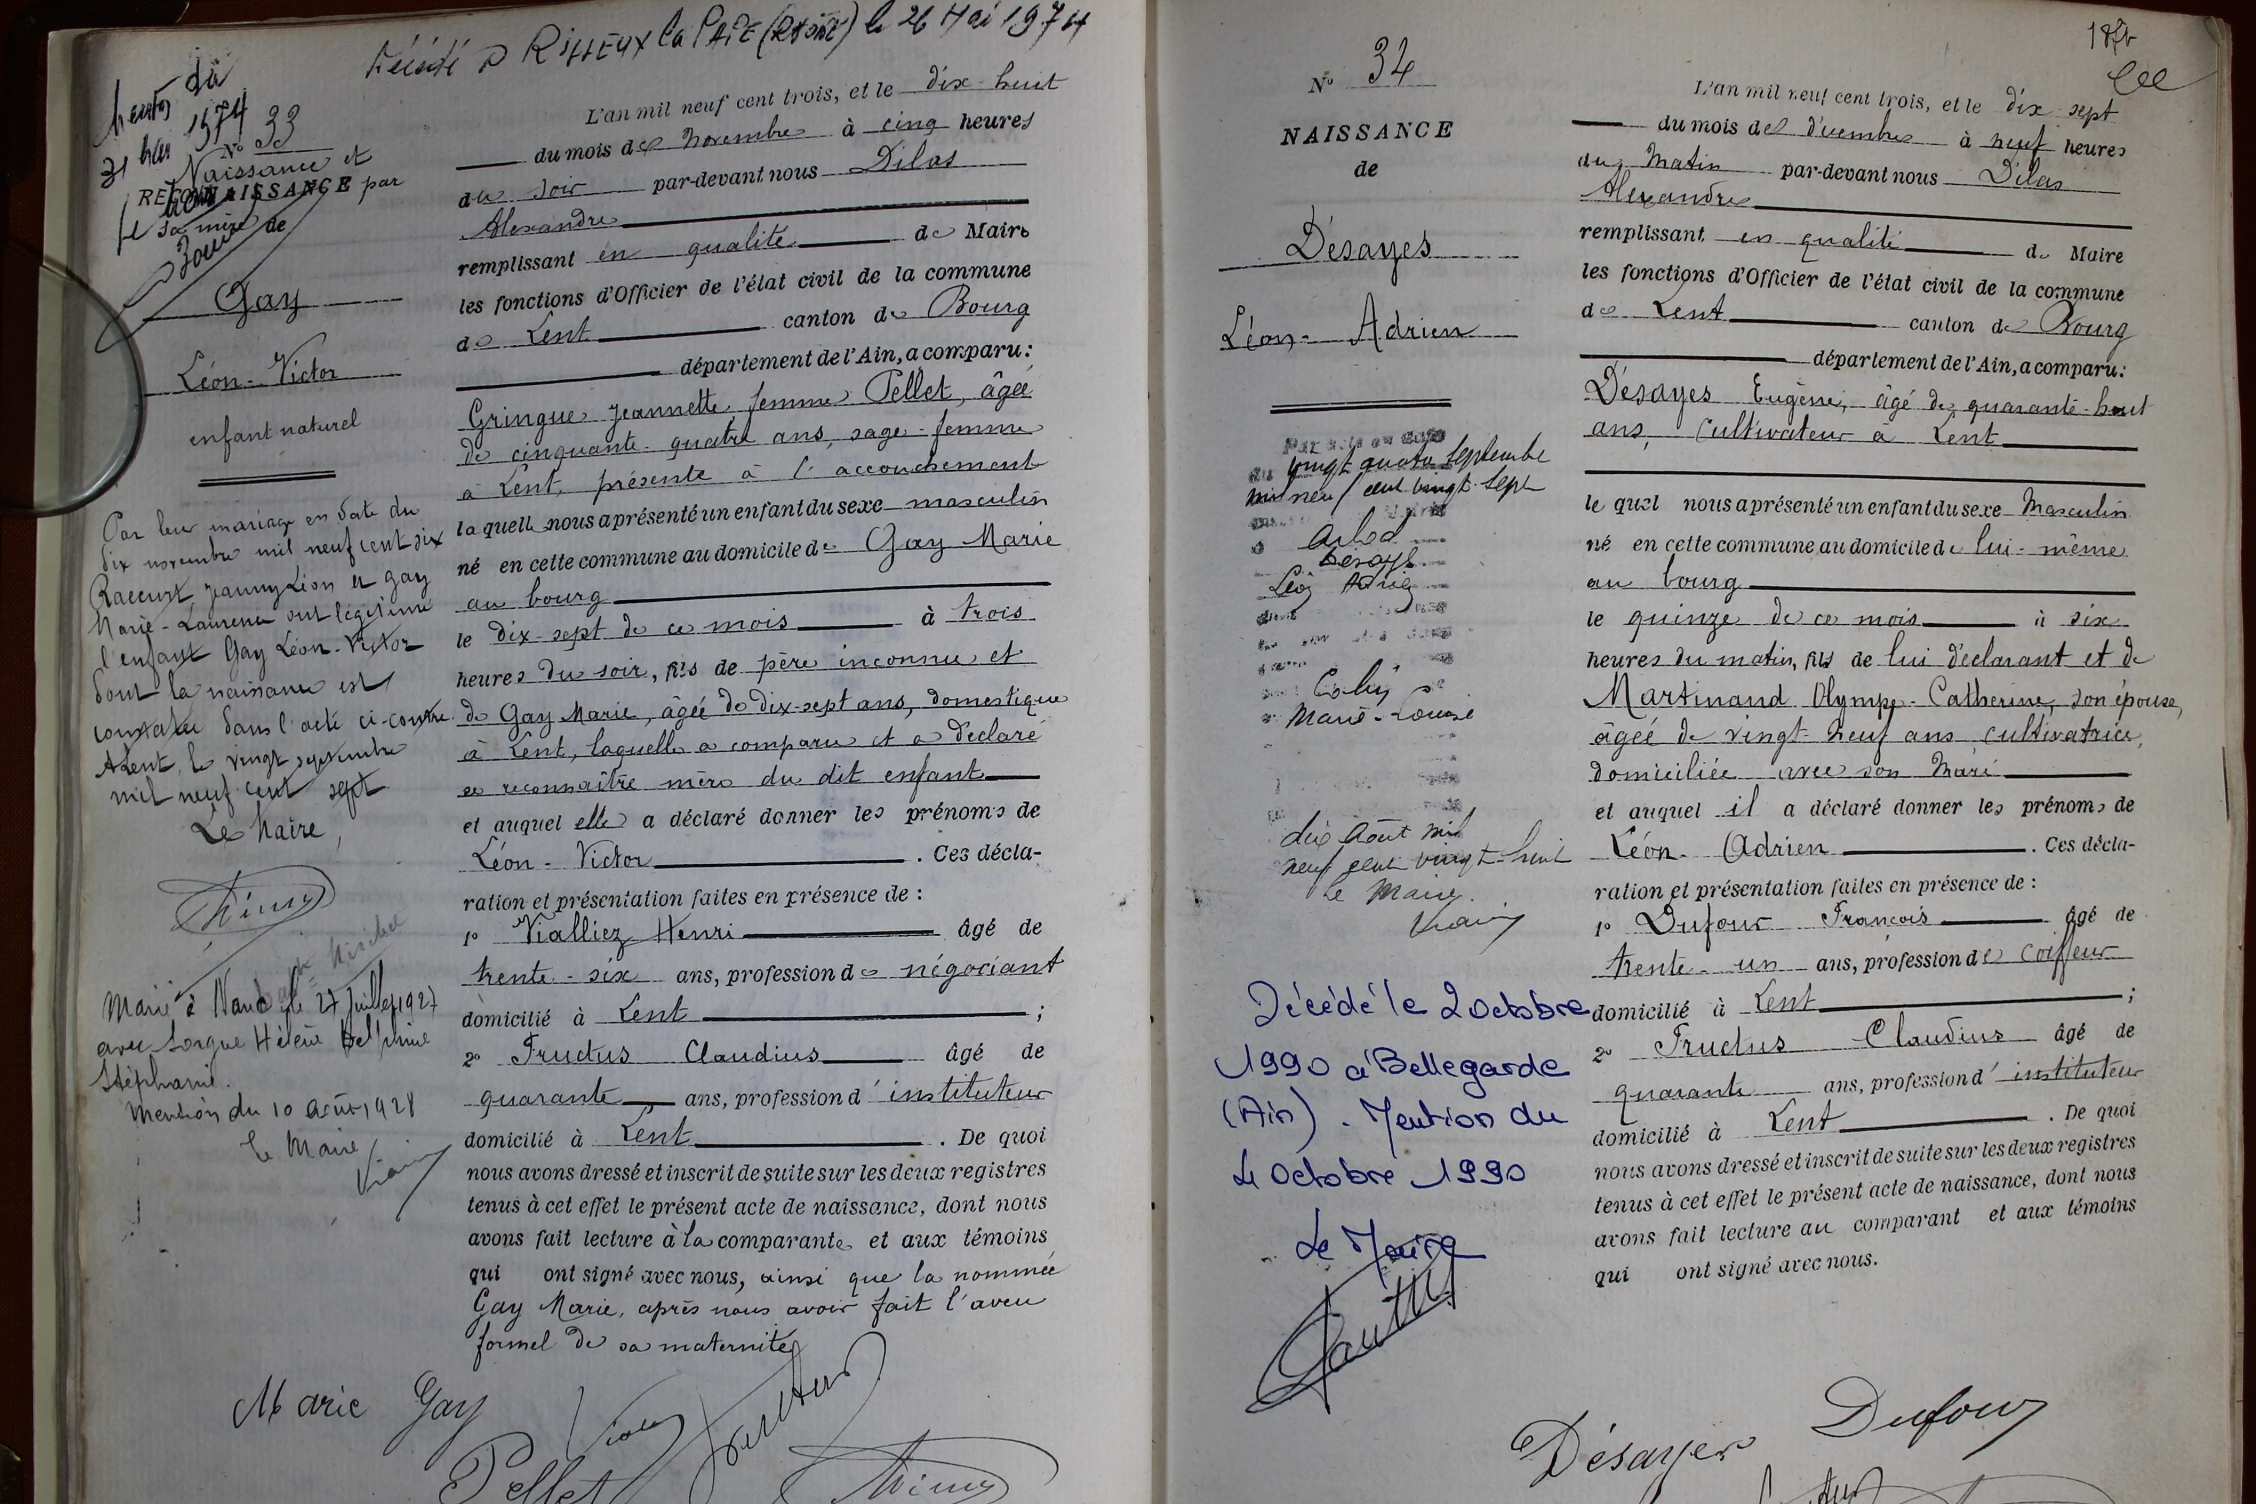 Décédé à RILLIEUX la PAPE (RHÔNE) le 26 Mai 1974
du
31 Mai 1974
N° 33
Naissance et
RECONNAISSANCE par
sa mère de
Gay
Léon-Victor
enfant naturel
Par leur mariage en date du
dix novembre mil neuf cent six
Raccurt Jeanny Léon et Gay
Marie-Laurence ont légitimé
l'enfant Gay Léon-Victor
dont la naissance est
constatée dans l'acte ci-contre
A Lent, le vingt septembre
mil neuf cent sept
Le Maire,
Marié à le 27 Juillet 1927
avec Hélène Delphine
Stéphanie.
Mention du 10 août 1928
le Maire
L'an mil neuf cent trois, et le dix-huit
du mois de Novembre à cinq heures
du soir par-devant nous Dilas
Alexandre
remplissant en qualité de Maire
les fonctions d'Officier de l'état civil de la commune
de Lent canton de Bourg
département de l'Ain, a comparu:
Gringue Jeannette femme Pellet, âgée
de cinquante-quatre ans, sage-femme
à Lent, présente à l'accouchement
la quelle nous a présenté un enfant du sexe masculin
né en cette commune au domicile de Gay Marie
au bourg
le dix-sept de ce mois à trois
heures du soir, fils de père inconnu et
de Gay Marie, âgée de dix-sept ans, domestique
à Lent, laquelle a comparu et a déclaré
se reconnaître mère du dit enfant
et auquel elle a déclaré donner les prénoms de
Léon-Victor. Ces décla-
ration et présentation faites en présence de:
1° Vialliez Henri âgé de
trente-six ans, profession de négociant
domicilié à Lent;
2° Fructus Claudius âgé de
quarante ans, profession d'instituteur
domicilié à Lent. De quoi
nous avons dressé et inscrit de suite sur les deux registres
tenus à cet effet le présent acte de naissance, dont nous
avons fait lecture à la comparante et aux témoins
qui ont signé avec nous, ainsi que la nommée
Gay Marie, après nous avoir fait l'aveu
formel de sa maternité
Marie Gay
Pellet
N° 34
NAISSANCE
de
Désayes
Léon-Adrien
vingt quatre Septembre
mil neuf cent vingt-sept
Désayes
Léon Adrien
Marie-Louise
dix Août mil
neuf cent vingt-huit
Le Maire
Décédé le 2 octobre
1990 à Bellegarde
(Ain). Mention du
4 octobre 1990
Le Maire
L'an mil neuf cent trois, et le dix sept
du mois de décembre à neuf heures
du Matin par-devant nous Dilas
Alexandre
remplissant en qualité de Maire
les fonctions d'Officier de l'état civil de la commune
de Lent canton de Bourg
département de l'Ain, a comparu:
Désayes Eugène, âgé de quarante-huit
ans, cultivateur à Lent
le quel nous a présenté un enfant du sexe Masculin
né en cette commune au domicile de lui-même
au bourg
le quinze de ce mois à six
heures du matin, fils de lui déclarant et de
Martinand Olympe-Catherine, son épouse,
âgée de vingt-neuf ans cultivatrice,
domiciliée avec son Mari
et auquel il a déclaré donner les prénoms de
Léon-Adrien. Ces décla-
ration et présentation faites en présence de:
1° Dufour François âgé de
trente-un ans, profession de coiffeur
domicilié à Lent;
2° Fructus Claudius âgé de
quarante ans, profession d'instituteur
domicilié à Lent. De quoi
nous avons dressé et inscrit de suite sur les deux registres
tenus à cet effet le présent acte de naissance, dont nous
avons fait lecture au comparant et aux témoins
qui ont signé avec nous.
Désayes
Dufour